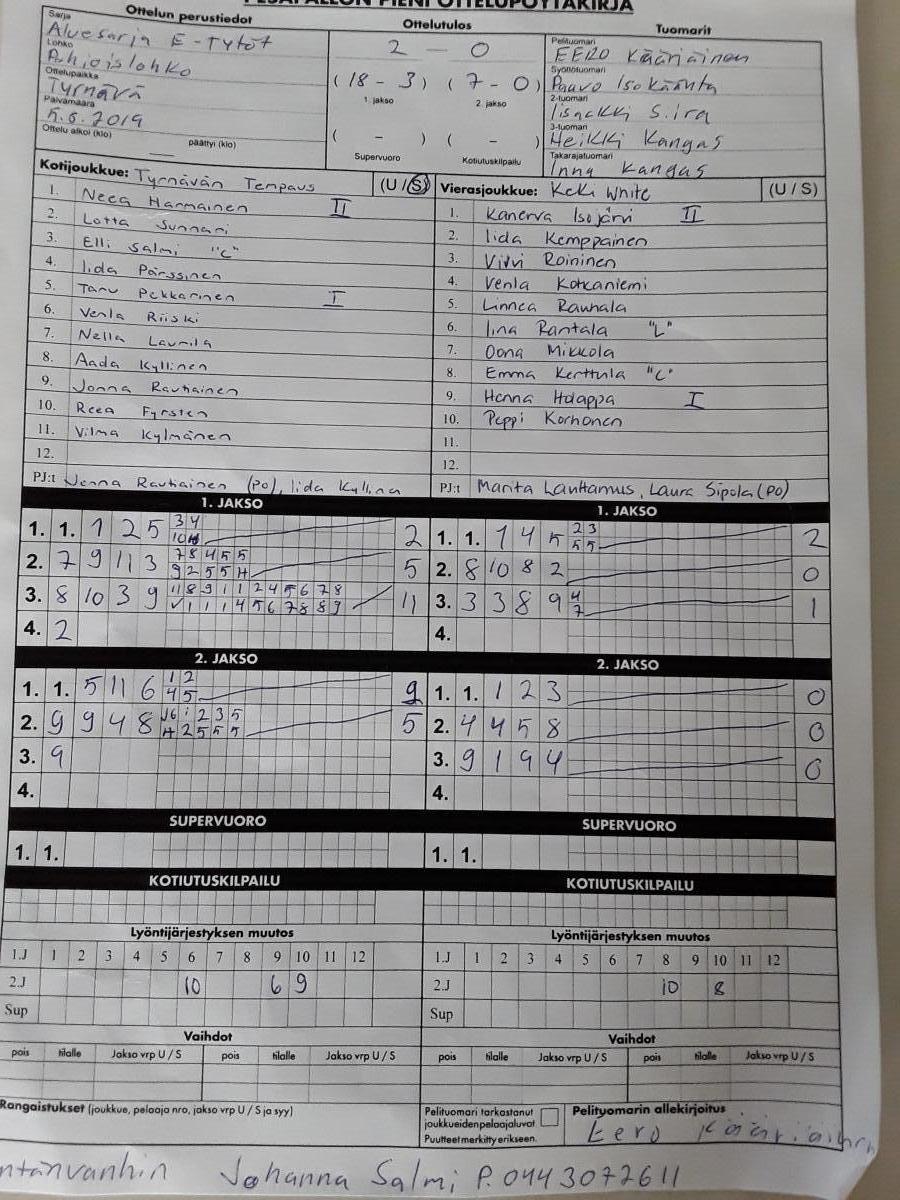 PESÄPALLON PIENI OTTELUPÖYTÄKIRJA
Ottelun perustiedot
Sarja
Aluesarja E-Tytöt
Lohko
Pohjoislohko
Ottelupaikka
Tyrnävä
Päivämäärä
5.6.2019
Ottelu alkoi (klo) päättyi (klo)
Ottelutulos
2 - 0
(18 - 3) (7 - 0)
1. jakso 2. jakso
( - ) ( - )
Supervuoro Kotiutuskilpailu
Tuomarit
Pelituomari
EERO Kääriäinen
Syöttötuomari
Paavo Isokääntä
2-tuomari
Iisakki S.ira
3-tuomari
Heikki Kangas
Takarajatuomari
Inna Kangas
Kotijoukkue: Tyrnävän Tempaus (U / S)
1. Neea Harmainen II
2. Lotta Sunnari
3. Elli Salmi "C"
4. Iida Pärssinen
5. Taru Pekkarinen I
6. Venla Riiski
7. Nella Laurila
8. Aada Kyllinen
9. Jonna Rautiainen
10. Reea Fyrsten
11. Vilma Kylmänen
12.
PJ:t Jenna Rautiainen (PO), Iida Kyllinen
Vierasjoukkue: KeKi White (U / S)
1. Kanerva Isojärvi II
2. Iida Kemppainen
3. Viivi Roininen
4. Venla Kotkaniemi
5. Linnea Rauhala
6. Iina Rantala "L"
7. Oona Mikkola
8. Emma Kerttula "C"
9. Henna Holappa I
10. Peppi Korhonen
11.
12.
PJ:t Marita Lauttamus, Laura Sipola (PO)
1. JAKSO
1. 1. 1 2 5 3 4 2
10
2. 7 9 11 3 7 8 4 5 5 5
9 2 5 5 H
3. 8 10 3 9 11 8 9 1 1 2 4 5 6 7 8 11
V 1 1 1 4 5 6 7 8 8 9
4. 2
1. JAKSO
1. 1. 1 4 5 2 3 2
5 5
2. 8 10 8 2 0
3. 3 3 8 9 4 1
7
4.
2. JAKSO
1. 1. 5 11 6 1 2 2
4 5
2. 9 9 4 8 6 1 2 3 5 5
H 2 5 5 5
3. 9
4.
2. JAKSO
1. 1. 1 2 3 0
2. 4 4 5 8 0
3. 9 1 9 4 0
4.
SUPERVUORO
1. 1.
SUPERVUORO
1. 1.
KOTIUTUSKILPAILU
KOTIUTUSKILPAILU
Lyöntijärjestyksen muutos
1.J 1 2 3 4 5 6 7 8 9 10 11 12
2.J 10 6 9
Sup
Lyöntijärjestyksen muutos
1.J 1 2 3 4 5 6 7 8 9 10 11 12
2.J 10 8
Sup
Vaihdot
pois tilalle Jakso vrp U / S pois tilalle Jakso vrp U / S
Vaihdot
pois tilalle Jakso vrp U / S pois tilalle Jakso vrp U / S
Rangaistukset (joukkue, pelaaja nro, jakso vrp U / S ja syy)
Pelituomari tarkastanut
joukkueidenpelaajaluvat.
Puutteet merkitty erikseen.
Pelituomarin allekirjoitus
Eero Kääriäinen
ntänvanhin Johanna Salmi P. 0443072611